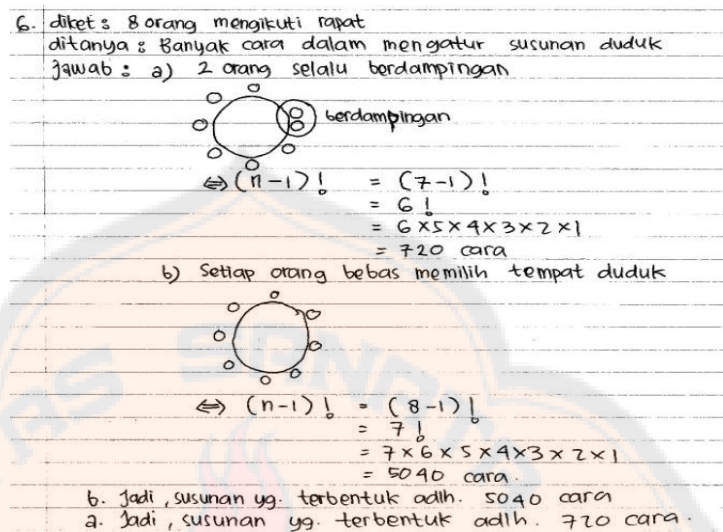 6. diket : 8 orang mengikuti rapat
ditanya : Banyak cara dalam mengatur susunan duduk
Jawab : a) 2 orang selalu berdampingan
berdampingan
⇔ (n-1)! = (7-1)!
= 6!
= 6×5×4×3×2×1
= 720 cara
b) Setiap orang bebas memilih tempat duduk
⇔ (n-1)! = (8-1)!
= 7!
= 7×6×5×4×3×2×1
= 5040 cara.
b. Jadi, susunan yg. terbentuk adlh. 5040 cara
a. Jadi, susunan yg. terbentuk adlh. 720 cara.
AS SANATA